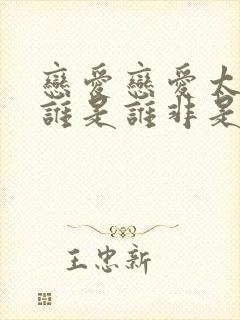 戀愛戀愛太
誰是誰非是
王忠新